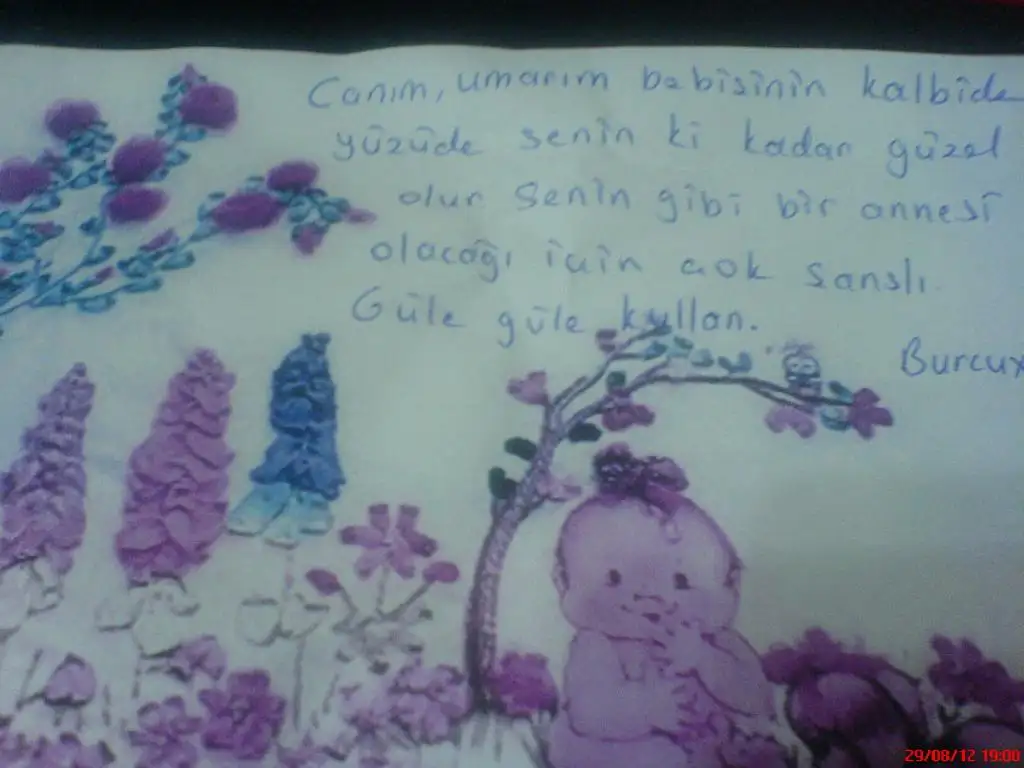 Canım, umarım bebisinin kalbide
yüzüde senin ki kadar güzel
olur senin gibi bir annesi
olacağı için çok şanslı.
Güle güle kullan.
Burcux
29/08/12 19:00